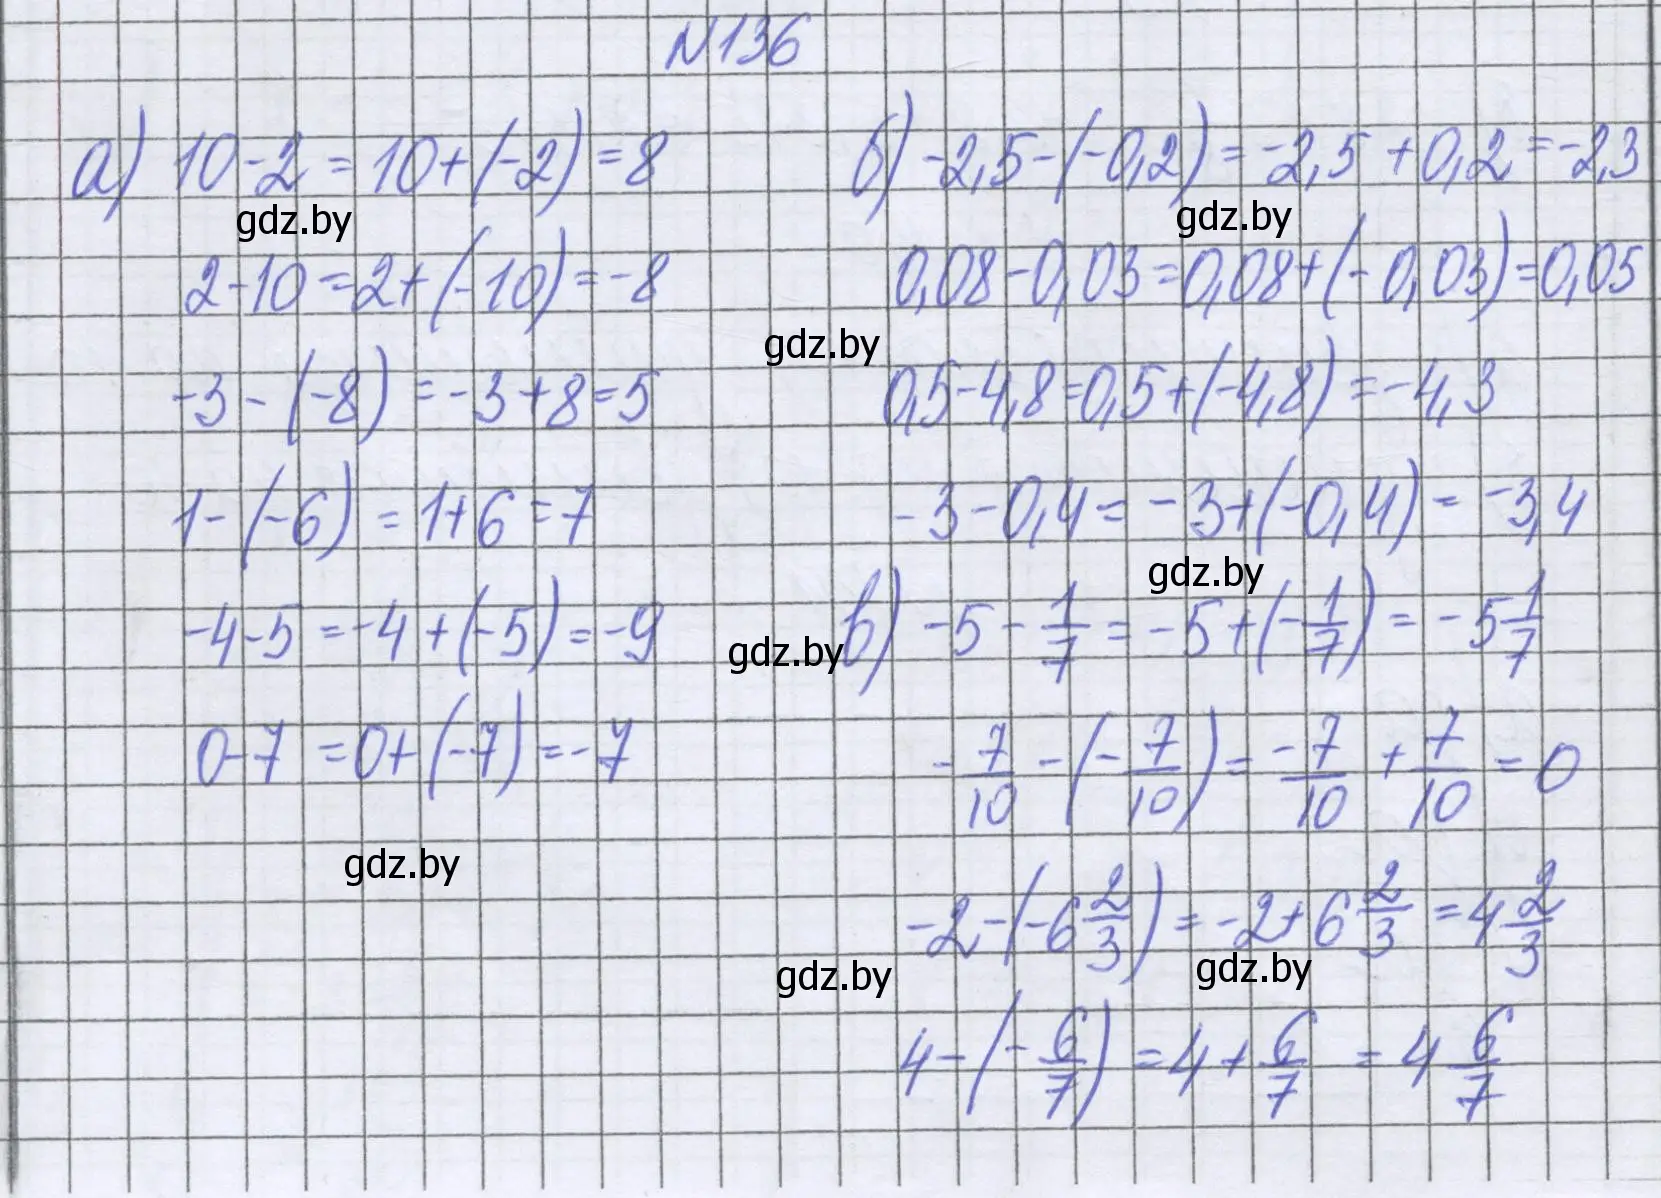 N136
а) 10-2=10+(-2)=8
gdz.by
2-10=2+(-10)=-8
-3-(-8)=-3+8=5
1-(-6)=1+6=7
-4-5=-4+(-5)=-9
0-7=0+(-7)=-7
gdz.by
б) -2,5-(-0,2)=-2,5+0,2=-2,3
gdz.by
0,08-0,03=0,08+(-0,03)=0,05
gdz.by
0,5-4,8=0,5+(-4,8)=-4,3
-3-0,4=-3+(-0,4)=-3,4
gdz.by
gdz.by
в) -5-1/7=-5+(-1/7)=-5 1/7
-7/10-(-7/10)=-7/10+7/10=0
-2-(-6 2/3)=-2+6 2/3=4 2/3
gdz.by gdz.by
4-(-6/7)=4+6/7=4 6/7